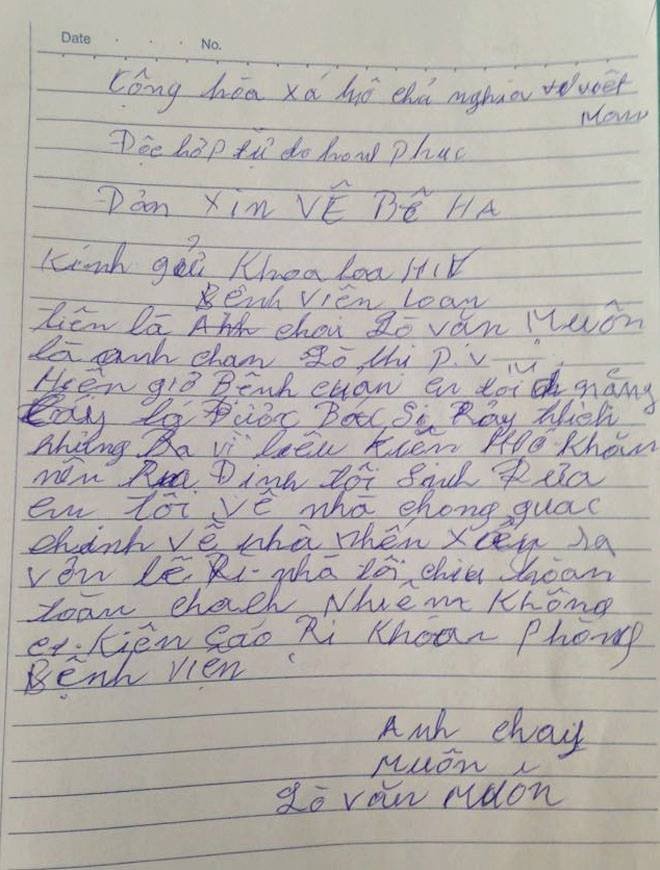 Date . . . No.
Cộng hòa xá hộ chủ nghĩa việt
Mam
Độc hâp tự do hanh Phuc
Dơn Xin VỄ BỄ HA
Kính gửi Khoa loa HIV
Bênh Viên Loan
tiên là Anh chai Lò văn Muôn
là anh chan Lò thị P. V
Hiên giờ Bênh cuan em tôi năng
là Được Bac Sĩ Rảy thich
nhưng Ba vì liêu Kiên Hoc Khăn
nên Rua Đinh tôi Sinh Rưa
em tôi Về nhà chong quac
chinh Về nhà nhên Xảy ra
vớn lề Ri nhà tôi chiu hoan
toàn chach Nhiêm Không
Kiên Cáo Ri Khoar Phòng
Bệnh Viên
Anh chay
Muôn
Lò văn Muôn